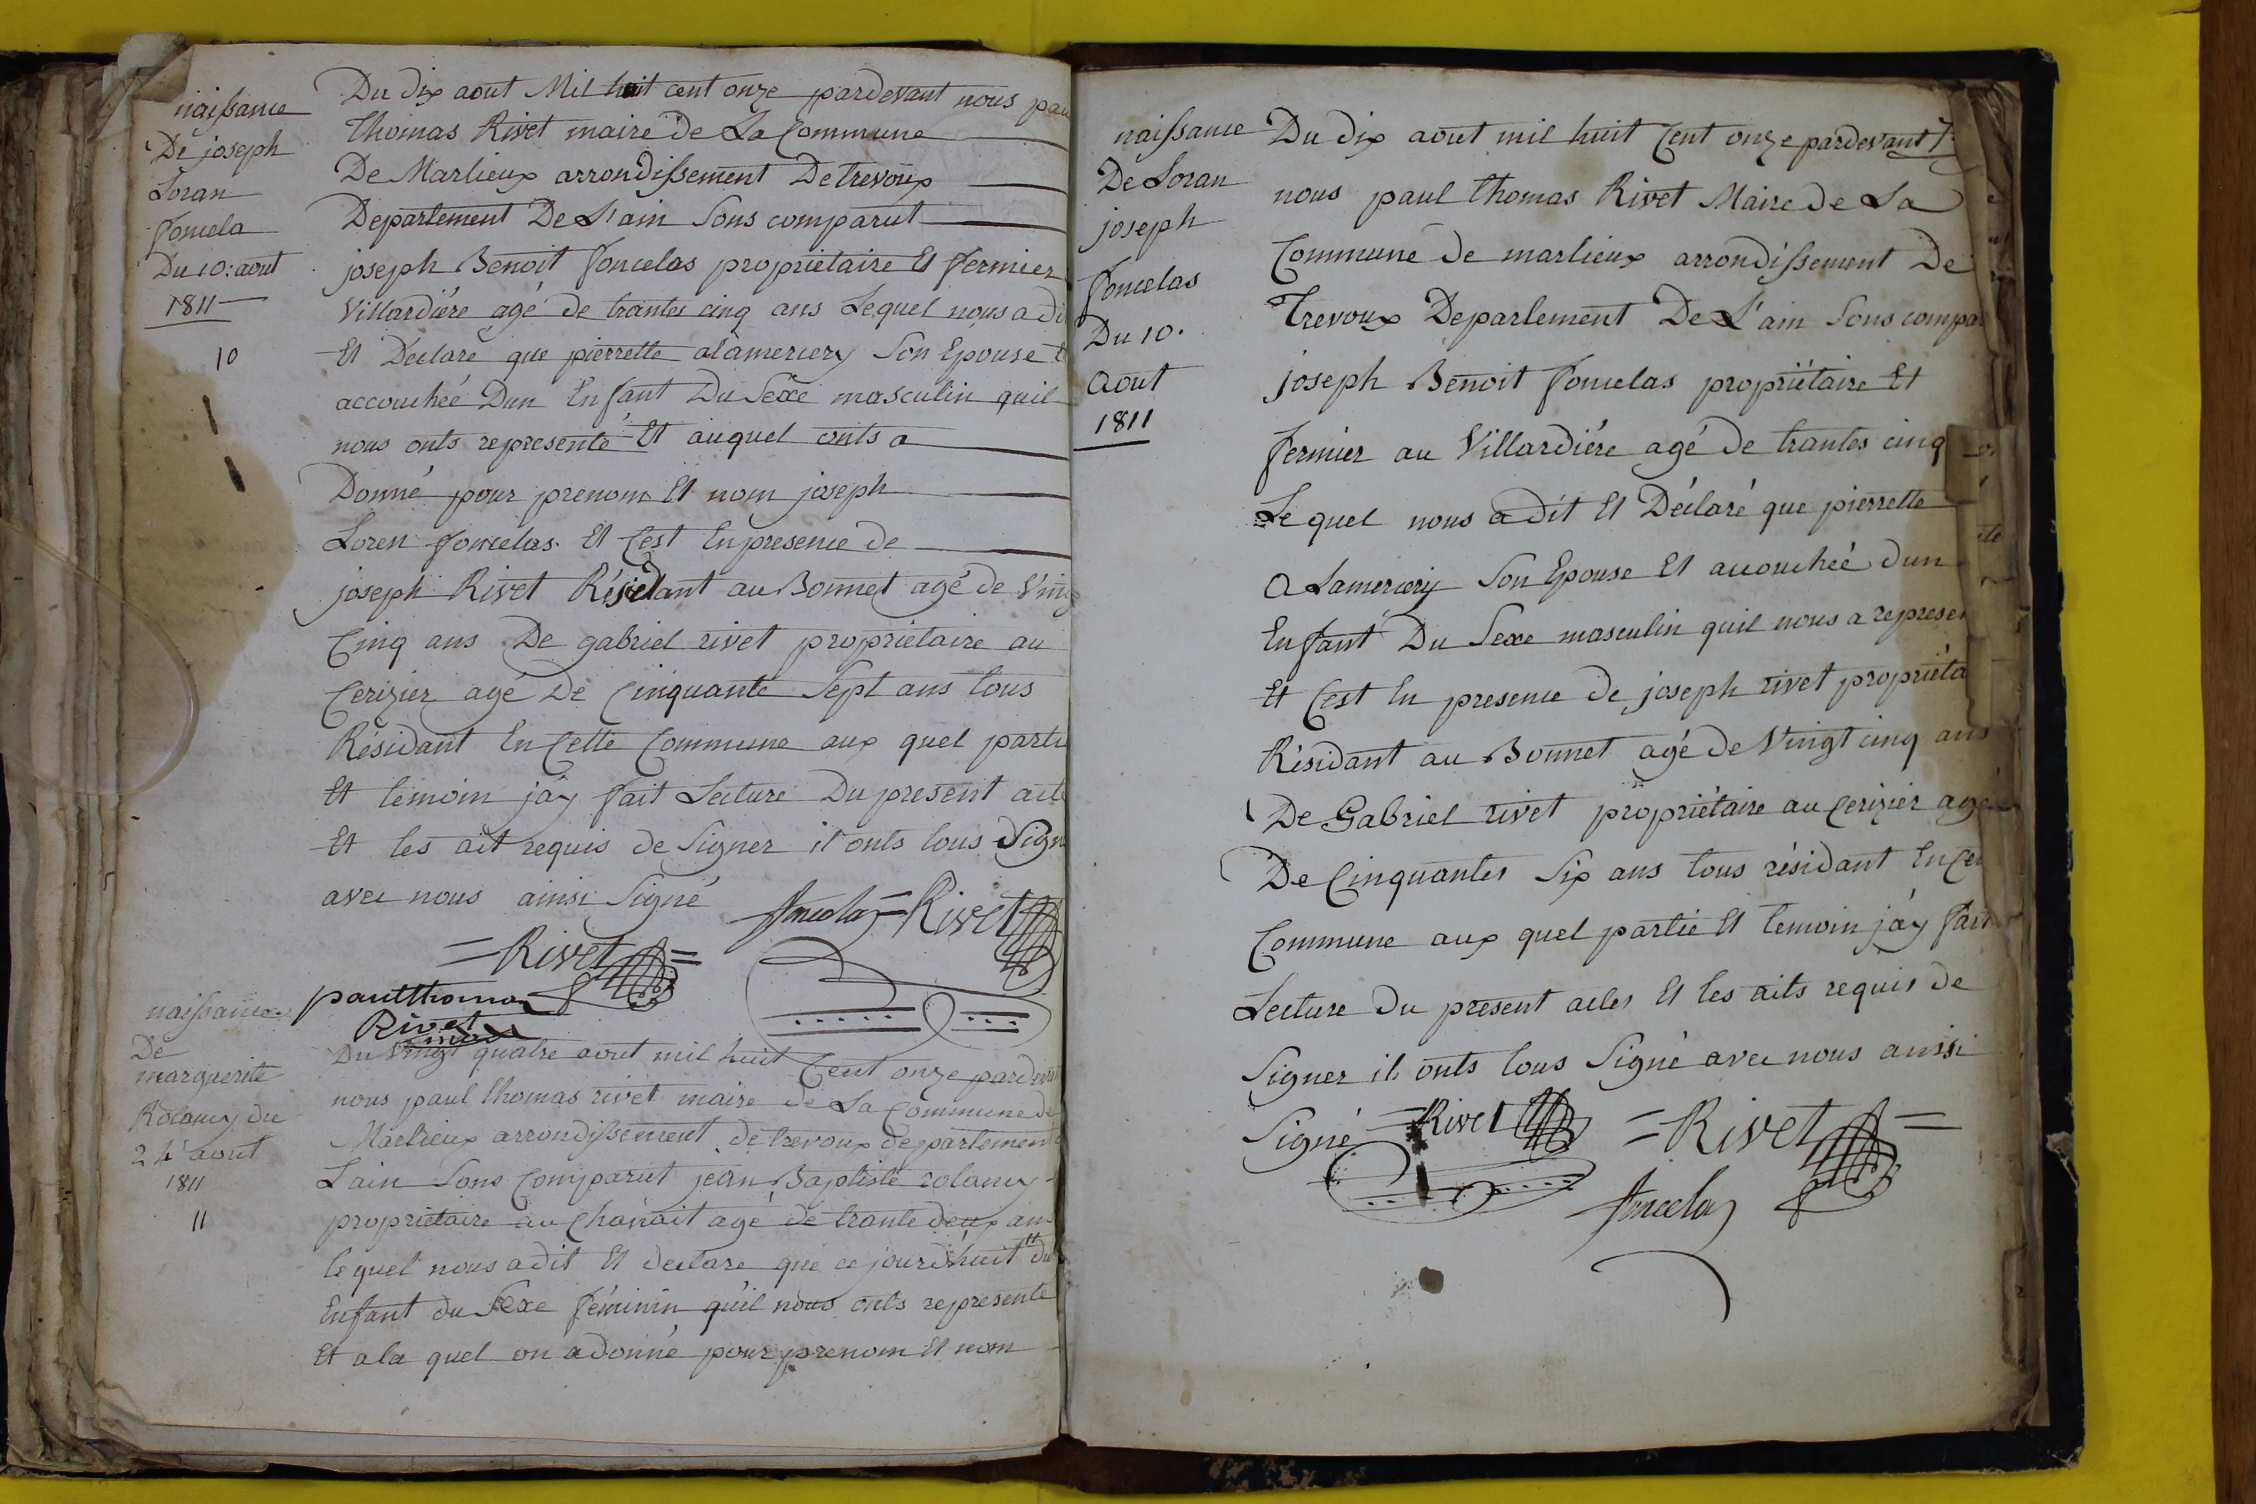 naissance
De joseph
Loran
foncela
Du 10: aout
1811
10
Du dix aout Mil huit cent onze pardevant nous pau
Thomas Rivet maire de La Commune
De Marlieux arrondissement De trevoux
Departement De L'ain Sons comparut
joseph Benoit foncelas propriétaire Et fermier
Villardiére agé de trantes cinq ans Lequel nous a di
Et Declare que pierrette alamercery Son Epouse
accouchéé Dun Enfant Du Sexe masculin quil
nous onts representé Et auquel onts a
Donné pour prenom Et nom joseph
Loren foncelas Et Cest En presence de
joseph Rivet Résidant au Bonnet agé de Ving
Cinq ans De gabriel rivet propriétaire au
Cerizier agé De Cinquante Sept ans tous
Résidant En Cette Commune aux quel parti
Et temoin jáy fait Lecture Du present acte
Et les ait requis de Signer il onts tous Sign
avec nous ainsi Signé
foncelas Rivet
Rivet
paul thomas
Rivet
maire
naissance
De
marguerite
Rolancy du
24 aout
1811
11
Du Vingt quatre aout mil huit Cent onze pardevan
nous paul thomas rivet maire de La Commune de
Marlieux arrondissement de trevoux departement
Lain Sons Comparut jean Baptiste rolancy
propriétaire au Chanait agé de trante deux ans
le quel nous a dit Et declare que ce jourdhuit du
Enfant du Sexe féminin qu'il nous onts represente
Et a la quel on a donné pour prenom Et nom
naissance
De Loran
joseph
foncelas
Du 10.
Aout
1811
Du dix aout mil huit Cent onze pardevant
nous paul thomas Rivet Maire de La
Commune de marlieux arrondissement De
Trevoux Departement De L'ain Sons compar
joseph Benoit foncelas propriétaire Et
fermier au Villardiére agé de trantes cinq
Le quel nous a dit Et Déclaré que pierrette
a Lamercery Son Epouse Et accouchéé dun
Enfant Du Sexe masculin quil nous a represen
Et Cest En presence de joseph rivet propriéta
Résidant au Bonnet agé de Vingt cinq ans
De Gabriel rivet propriétaire au Cerizier agé
De Cinquantes Six ans tous résidant En Cet
Commune aux quel partie Et temoin jáy fait
Lecture Du present actes Et les aits requis de
Signer il onts tous Signé avec nous ainsi
Signé Rivet Rivet
foncelas